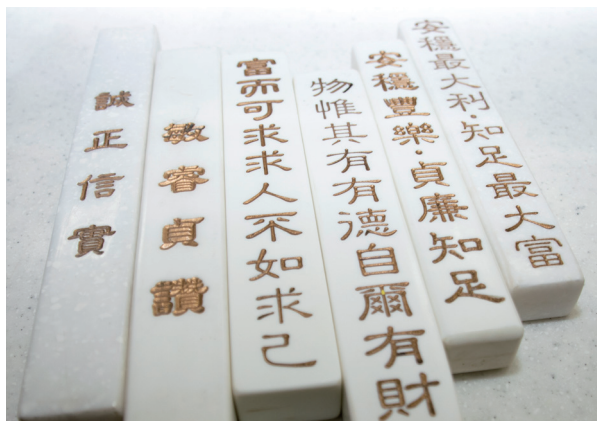 誠正信實
敏睿貞讚
富而可求求人不如求己
物惟其有有德自爾有財
安穩豐樂·貞廉知足
安穩最大利·知足最大富